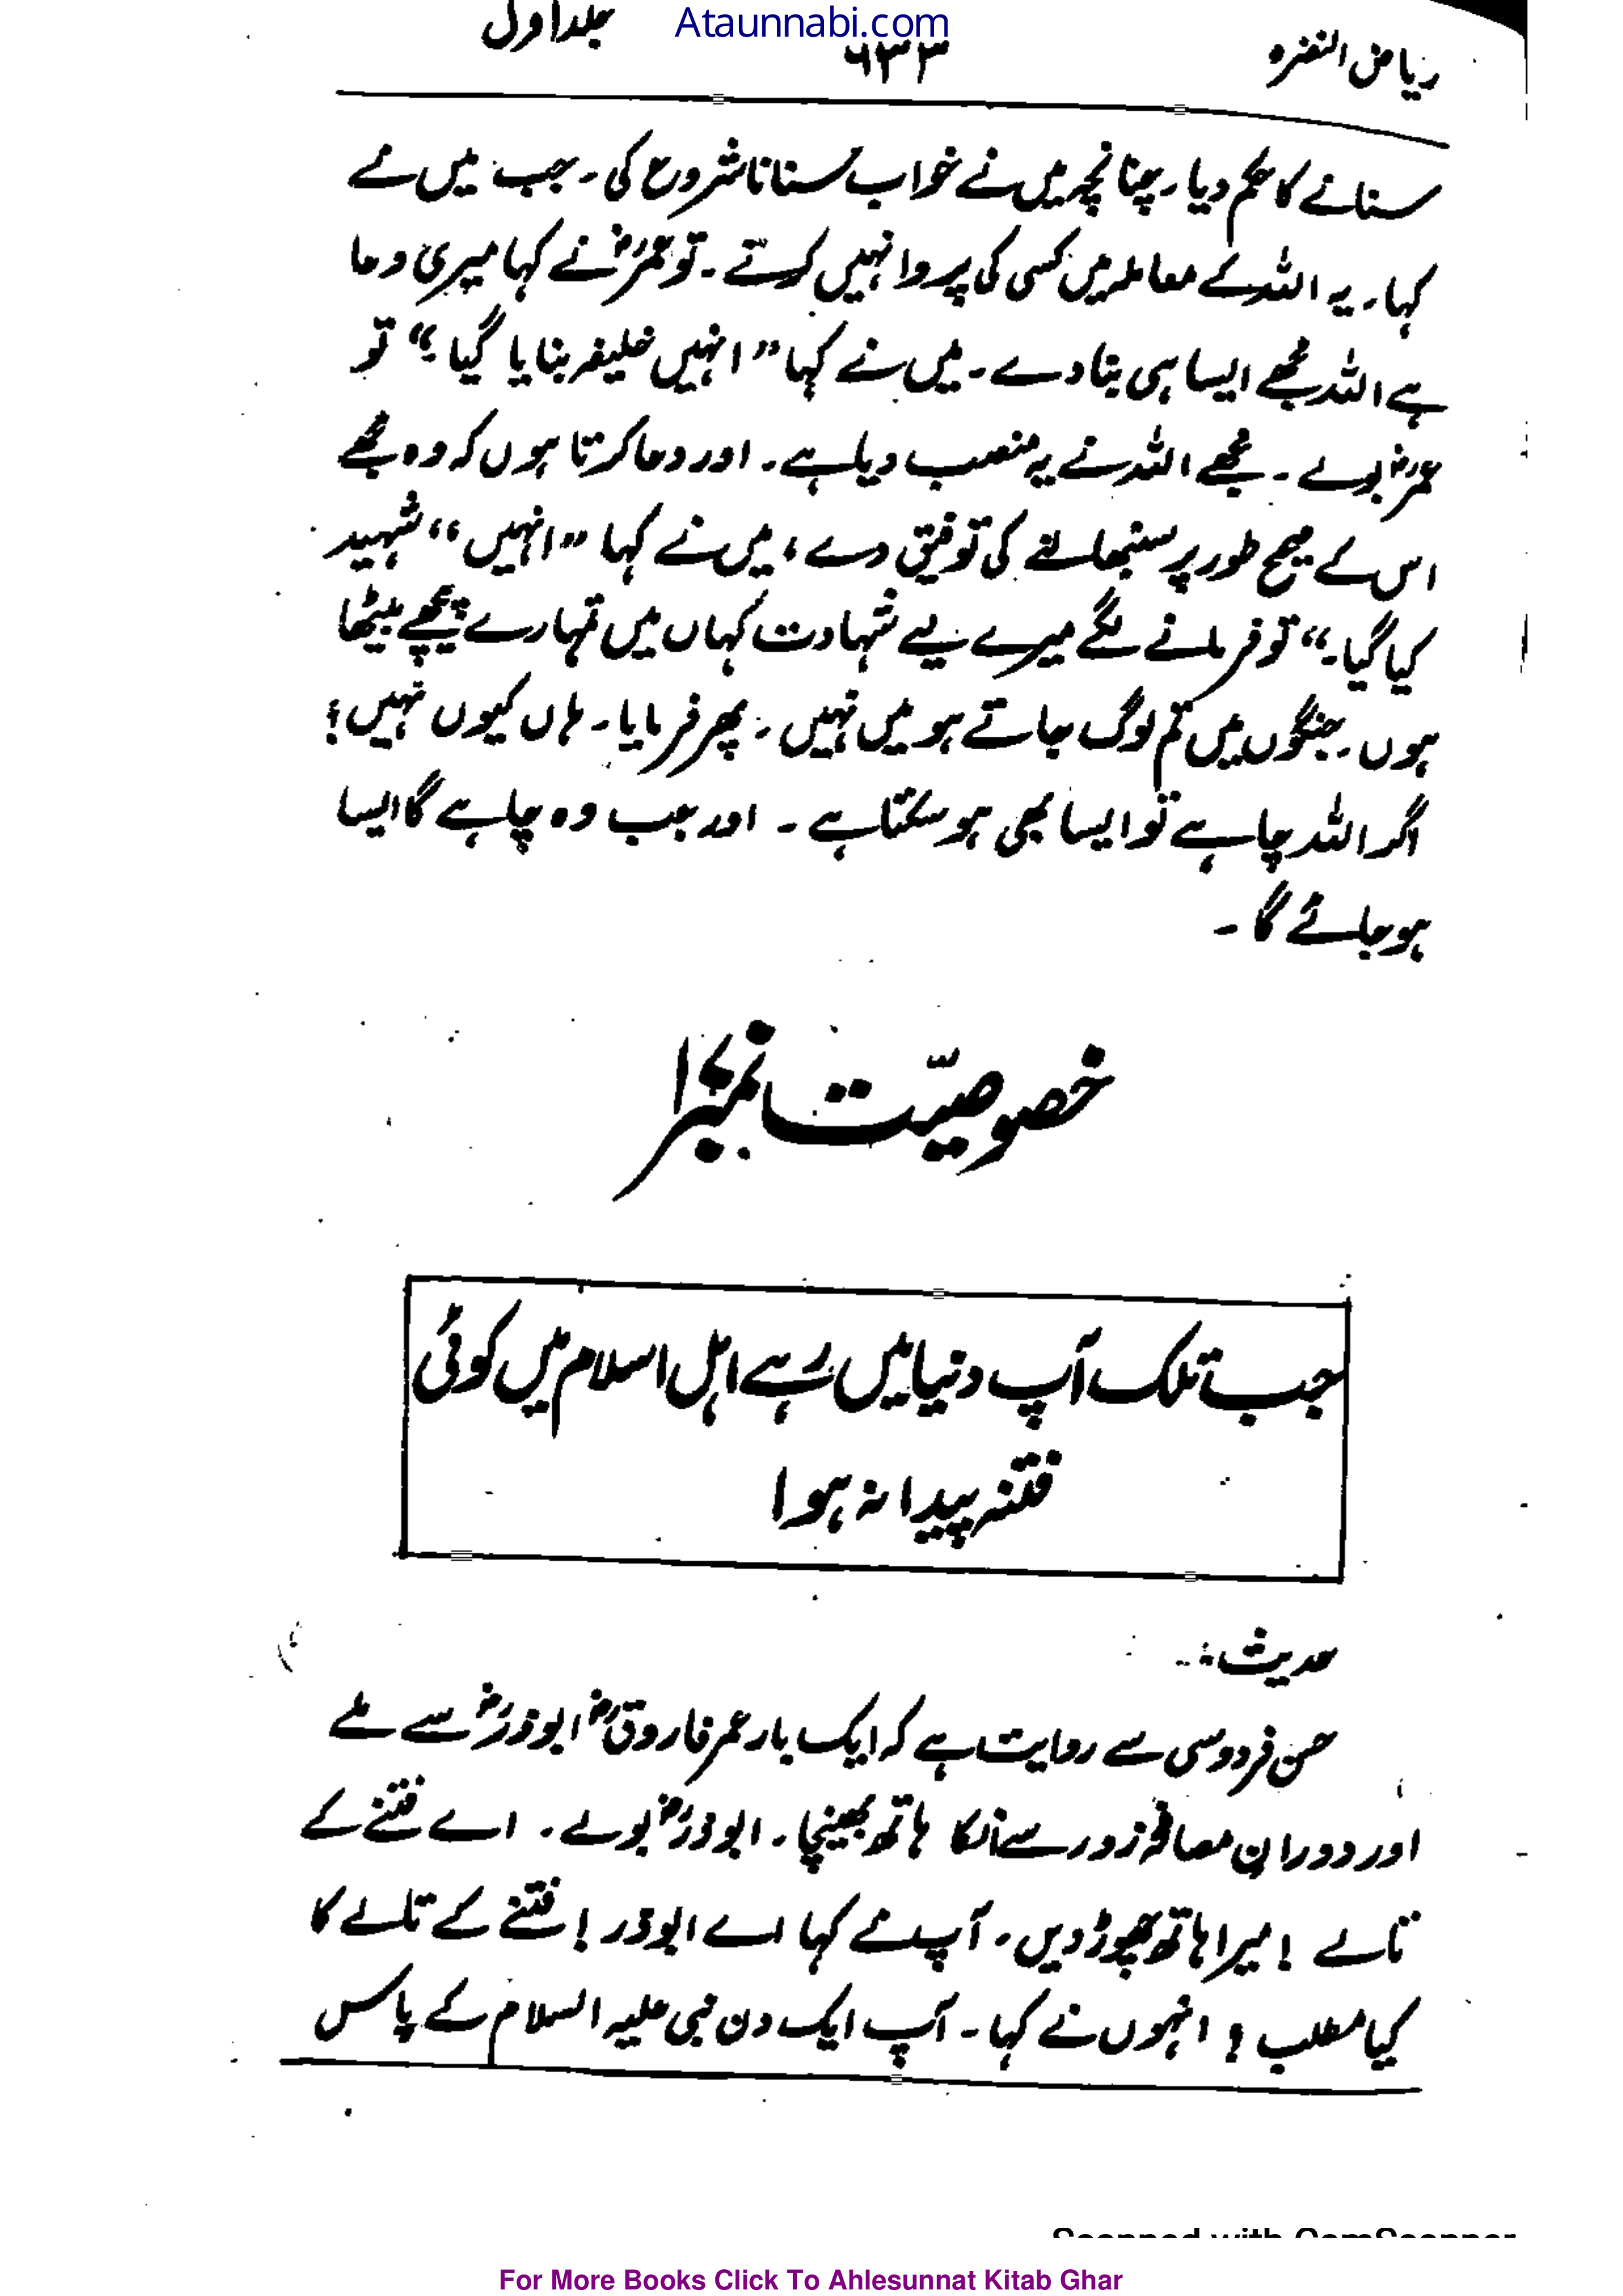 Ataunnabi.com
ریاض النضرہ ۶۳۳ جلد اول
سنانے کا حکم دیا۔ چنانچہ میں نے خواب سنانا شروع کی۔ جب میں نے
کہا۔ یہ اللہ کے معاملہ میں کسی کی پروا نہیں کرتے۔ تو عمرؓ نے کہا میری دعا
ہے اللہ مجھے ایسا ہی بنا دے۔ میں نے کہا ”انہیں خلیفہ بنایا گیا۔“ تو
عمرؓ بولے۔ مجھے اللہ نے یہ منصب دیا ہے۔ اور دعا کرتا ہوں کہ وہ مجھے
اس کے صحیح طور پر سنبھالنے کی توفیق دے، میں نے کہا ”انہیں“ شہید
کیا گیا۔“ تو فرمانے لگے میرے لیے شہادت کہاں میں تمہارے پیچھے بیٹھا
ہوں۔ جنگوں میں تم لوگ جاتے ہو میں نہیں۔ پھر فرمایا۔ ہاں کیوں نہیں؟
اگر اللہ چاہے تو ایسا بھی ہو سکتا ہے۔ اور جب وہ چاہے گا ایسا
ہو جائے گا۔
خصوصیّت نمبر
جب تلک آپ دنیا میں رہے اہل اسلام میں کوئی
فتنہ پیدا نہ ہوا
حدیث:۔
حسن فردوسی سے روایت ہے کہ ایک بار عمر فاروقؓ ابوذرؓ سے ملے
اور دورانِ مصافحہ زور سے انکا ہاتھ بھینچا۔ ابوذرؓ بولے۔ اے فتنے کے
تالے! میرا ہاتھ چھوڑ دیں۔ آپ نے کہا اے ابوذر! فتنے کے تالے کا
کیا مطلب؟ انہوں نے کہا۔ آپ ایک دن نبی علیہ السلام کے پاس
Scanned with CamScanner
For More Books Click To Ahlesunnat Kitab Ghar